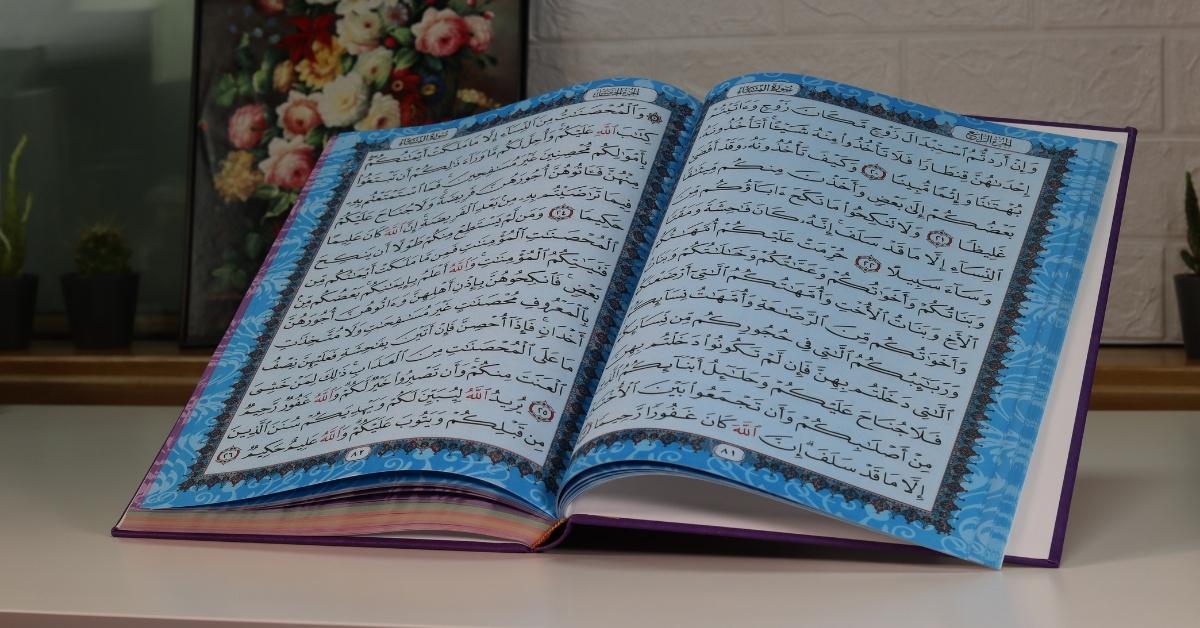 الجزء الرابع سورة النساء
وَإِنْ أَرَدتُّمُ ٱسْتِبْدَالَ زَوْجٍ مَّكَانَ زَوْجٍ وَءَاتَيْتُمْ
إِحْدَىٰهُنَّ قِنطَارًا فَلَا تَأْخُذُوا۟ مِنْهُ شَيْـًٔا أَتَأْخُذُونَهُۥ
بُهْتَٰنًا وَإِثْمًا مُّبِينًا ٢٠ وَكَيْفَ تَأْخُذُونَهُۥ وَقَدْ أَفْضَىٰ
بَعْضُكُمْ إِلَىٰ بَعْضٍ وَأَخَذْنَ مِنكُم مِّيثَٰقًا
غَلِيظًا ٢١ وَلَا تَنكِحُوا۟ مَا نَكَحَ ءَابَآؤُكُم
ٱلنِّسَآءِ إِلَّا مَا قَدْ سَلَفَ إِنَّهُۥ كَانَ فَٰحِشَةً وَمَقْتًا
وَسَآءَ سَبِيلًا ٢٢ حُرِّمَتْ عَلَيْكُمْ أُمَّهَٰتُكُمْ
وَبَنَاتُكُمْ وَأَخَوَٰتُكُمْ وَعَمَّٰتُكُمْ وَخَٰلَٰتُكُمْ وَبَنَاتُ
ٱلْأَخِ وَبَنَاتُ ٱلْأُخْتِ وَأُمَّهَٰتُكُمُ ٱلَّٰتِىٓ أَرْضَعْنَكُمْ
وَأَخَوَٰتُكُم مِّنَ ٱلرَّضَٰعَةِ وَأُمَّهَٰتُ نِسَآئِكُمْ
وَرَبَٰٓئِبُكُمُ ٱلَّٰتِى فِى حُجُورِكُم مِّن نِّسَآئِكُمُ
ٱلَّٰتِى دَخَلْتُم بِهِنَّ فَإِن لَّمْ تَكُونُوا۟ دَخَلْتُم بِهِنَّ
فَلَا جُنَاحَ عَلَيْكُمْ وَحَلَٰٓئِلُ أَبْنَآئِكُمُ ٱلَّذِينَ
مِنْ أَصْلَٰبِكُمْ وَأَن تَجْمَعُوا۟ بَيْنَ ٱلْأُخْتَيْنِ
إِلَّا مَا قَدْ سَلَفَ إِنَّ ٱللَّهَ كَانَ غَفُورًا رَّحِيمًا
٨١
الجزء الخامس سورة النساء
وَٱلْمُحْصَنَٰتُ مِنَ ٱلنِّسَآءِ إِلَّا مَا مَلَكَتْ أَيْمَٰنُكُمْ
كِتَٰبَ ٱللَّهِ عَلَيْكُمْ وَأُحِلَّ لَكُم مَّا وَرَآءَ ذَٰلِكُمْ أَن تَبْتَغُوا۟
بِأَمْوَٰلِكُم مُّحْصِنِينَ غَيْرَ مُسَٰفِحِينَ فَمَا ٱسْتَمْتَعْتُم بِهِۦ
مِنْهُنَّ فَـَٔاتُوهُنَّ أُجُورَهُنَّ فَرِيضَةً وَلَا جُنَاحَ عَلَيْكُمْ
فِيمَا تَرَٰضَيْتُم بِهِۦ مِنۢ بَعْدِ ٱلْفَرِيضَةِ إِنَّ ٱللَّهَ كَانَ عَلِيمًا
حَكِيمًا ٢٤ وَمَن لَّمْ يَسْتَطِعْ مِنكُمْ طَوْلًا أَن يَنكِحَ
ٱلْمُحْصَنَٰتِ ٱلْمُؤْمِنَٰتِ فَمِن مَّا مَلَكَتْ أَيْمَٰنُكُم مِّن
فَتَيَٰتِكُمُ ٱلْمُؤْمِنَٰتِ وَٱللَّهُ أَعْلَمُ بِإِيمَٰنِكُم بَعْضُكُم مِّنۢ
بَعْضٍ فَٱنكِحُوهُنَّ بِإِذْنِ أَهْلِهِنَّ وَءَاتُوهُنَّ أُجُورَهُنَّ
بِٱلْمَعْرُوفِ مُحْصَنَٰتٍ غَيْرَ مُسَٰفِحَٰتٍ وَلَا مُتَّخِذَٰتِ
أَخْدَانٍ فَإِذَآ أُحْصِنَّ فَإِنْ أَتَيْنَ بِفَٰحِشَةٍ فَعَلَيْهِنَّ نِصْفُ
مَا عَلَى ٱلْمُحْصَنَٰتِ مِنَ ٱلْعَذَابِ ذَٰلِكَ لِمَنْ خَشِىَ
ٱلْعَنَتَ مِنكُمْ وَأَن تَصْبِرُوا۟ خَيْرٌ لَّكُمْ وَٱللَّهُ غَفُورٌ رَّحِيمٌ
٢٥ يُرِيدُ ٱللَّهُ لِيُبَيِّنَ لَكُمْ وَيَهْدِيَكُمْ سُنَنَ ٱلَّذِينَ
مِن قَبْلِكُمْ وَيَتُوبَ عَلَيْكُمْ وَٱللَّهُ عَلِيمٌ حَكِيمٌ ٢٦
٨٢